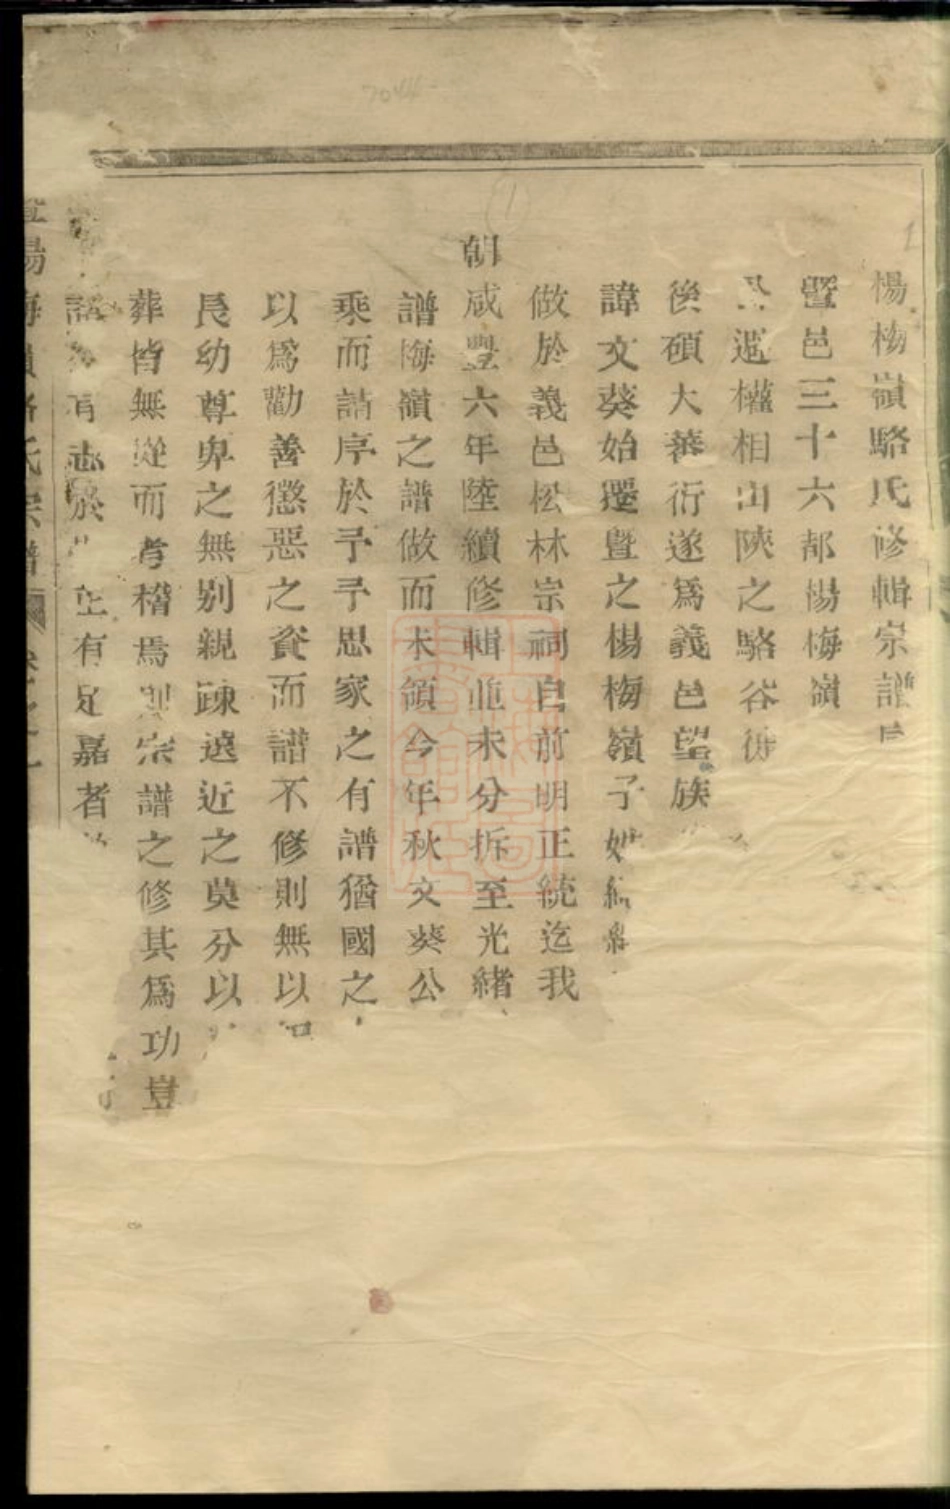 楊梅嶺駱氏修輯宗譜
暨邑三十六都楊梅嶺
遏權相出陝之駱谷
後碩大蕃衍遂為義邑望族
諱文葵始遷暨之楊梅嶺子
做於義邑松林宗祠自前明正統迄我
朝咸豐六年陸續修輯並未分拆至光緒
譜梅嶺之譜做而未領今年秋文葵公
乘而請序於予予思家之有譜猶國之
以為勸善懲惡之資而譜不修則無以
長幼尊卑之無別親疎遠近之莫分以
葬皆無從而考稽焉則宗譜之修其為功豈
有志於 有足嘉者
氏宗譜